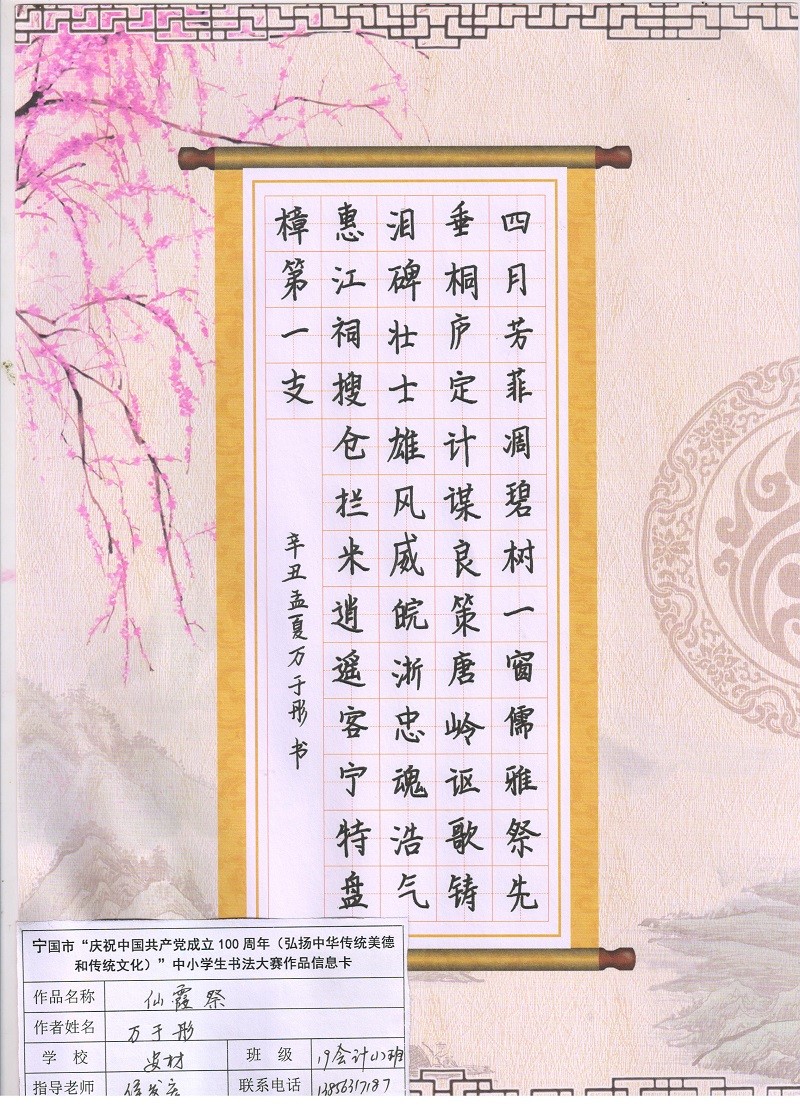 四月芳菲凋碧树一窗儒雅祭先
垂桐庐定计谋良策唐岭讴歌铸
泪碑壮士雄风威皖浙忠魂浩气
惠江祠搜仓拦米逍遥客宁特盘
樟第一支
辛丑孟夏万于彤书
宁国市“庆祝中国共产党成立100周年（弘扬中华传统美德
和传统文化）”中小学生书法大赛作品信息卡
作品名称 仙霞祭
作者姓名 万于彤
学 校 安材 班 级 19会计(2)班
指导老师 联系电话 13856317187